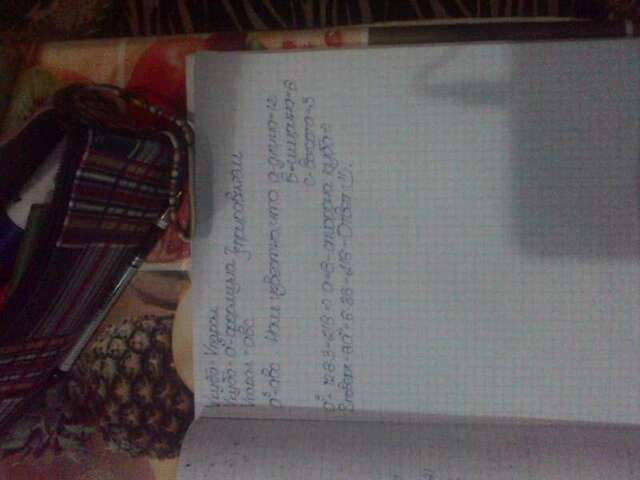 Vкуба = Vпарал
Vкуба = a³ - формула } приравняем
Vпарал = abc
a³ = abc . Нам известно, что a - длина = 12
b = ширина = 6
c - высота = 3
a³ = 12·6·3 = 216 => a = 6 - сторона куба =>
Sповерх = 6a² = 6·36 = 216 - Ответ !!!.